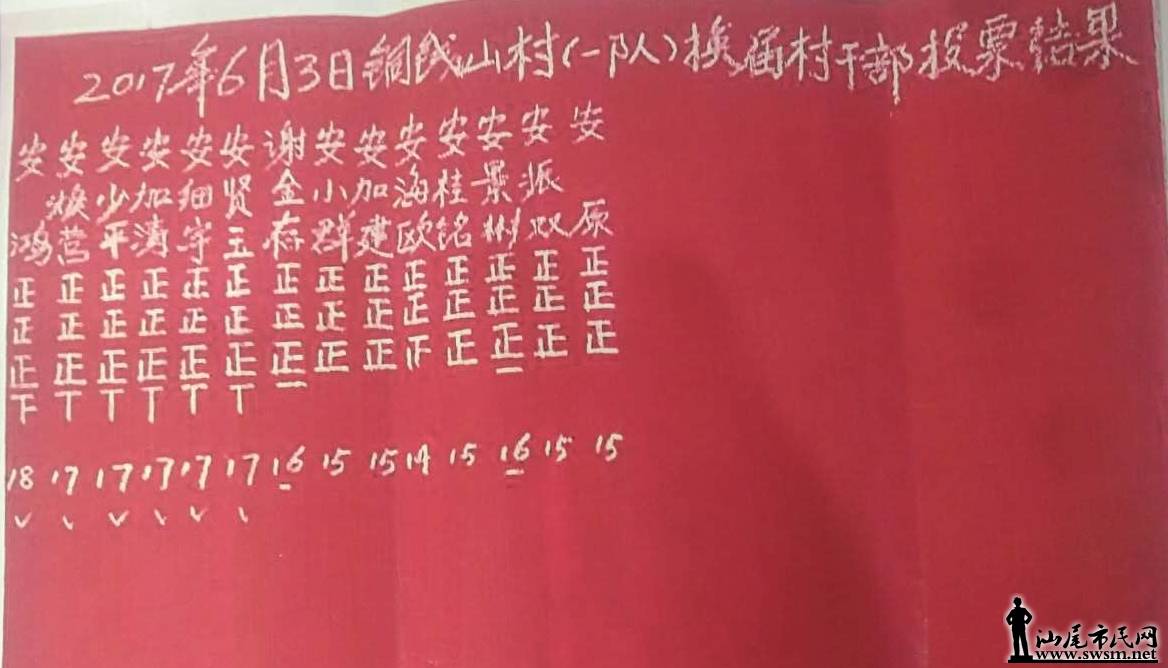 2017年6月3日铜钱山村(一队)换届村干部投票结果
安 安 安 安 安 安 谢 安 安 安 安 安 安 安
焕 少 加 细 贤 金 小 加 海 桂 景 振
鸿 营 平 涛 宇 玉 存 群 建 欧 铭 彬 双 原
正 正 正 正 正 正 正 正 正 正 正 正 正 正
正 正 正 正 正 正 正 正 正 正 正 正 正 正
正 正 正 正 正 正 正 正 正 正 正 正 正
下 丅 丅 丅 丅 丅 一 一
18 17 17 17 17 17 16 15 15 14 15 16 15 15
汕尾市民网
www.swsm.net